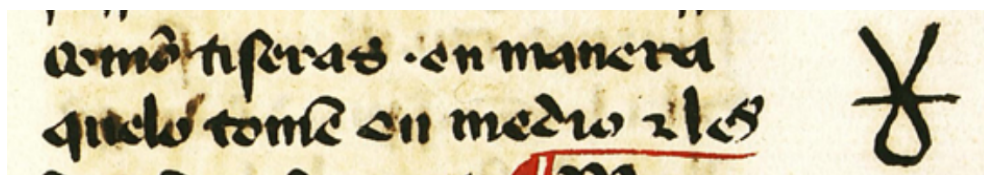 comо̄ tiseras · en manera
quelo tomē en medio ⁊ les